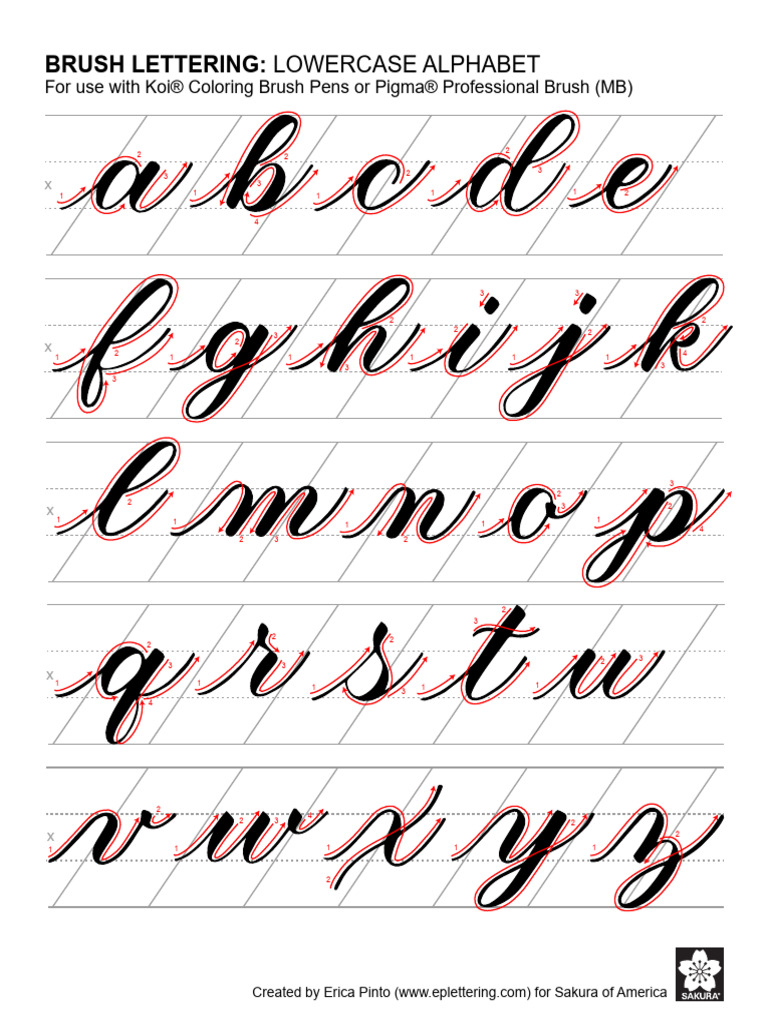 BRUSH LETTERING: LOWERCASE ALPHABET
For use with Koi® Coloring Brush Pens or Pigma® Professional Brush (MB)
x a b c d e
x f g h i j k
x l m n o p
x q r s t u
x v w x y z
Created by Erica Pinto (www.eplettering.com) for Sakura of America
SAKURA